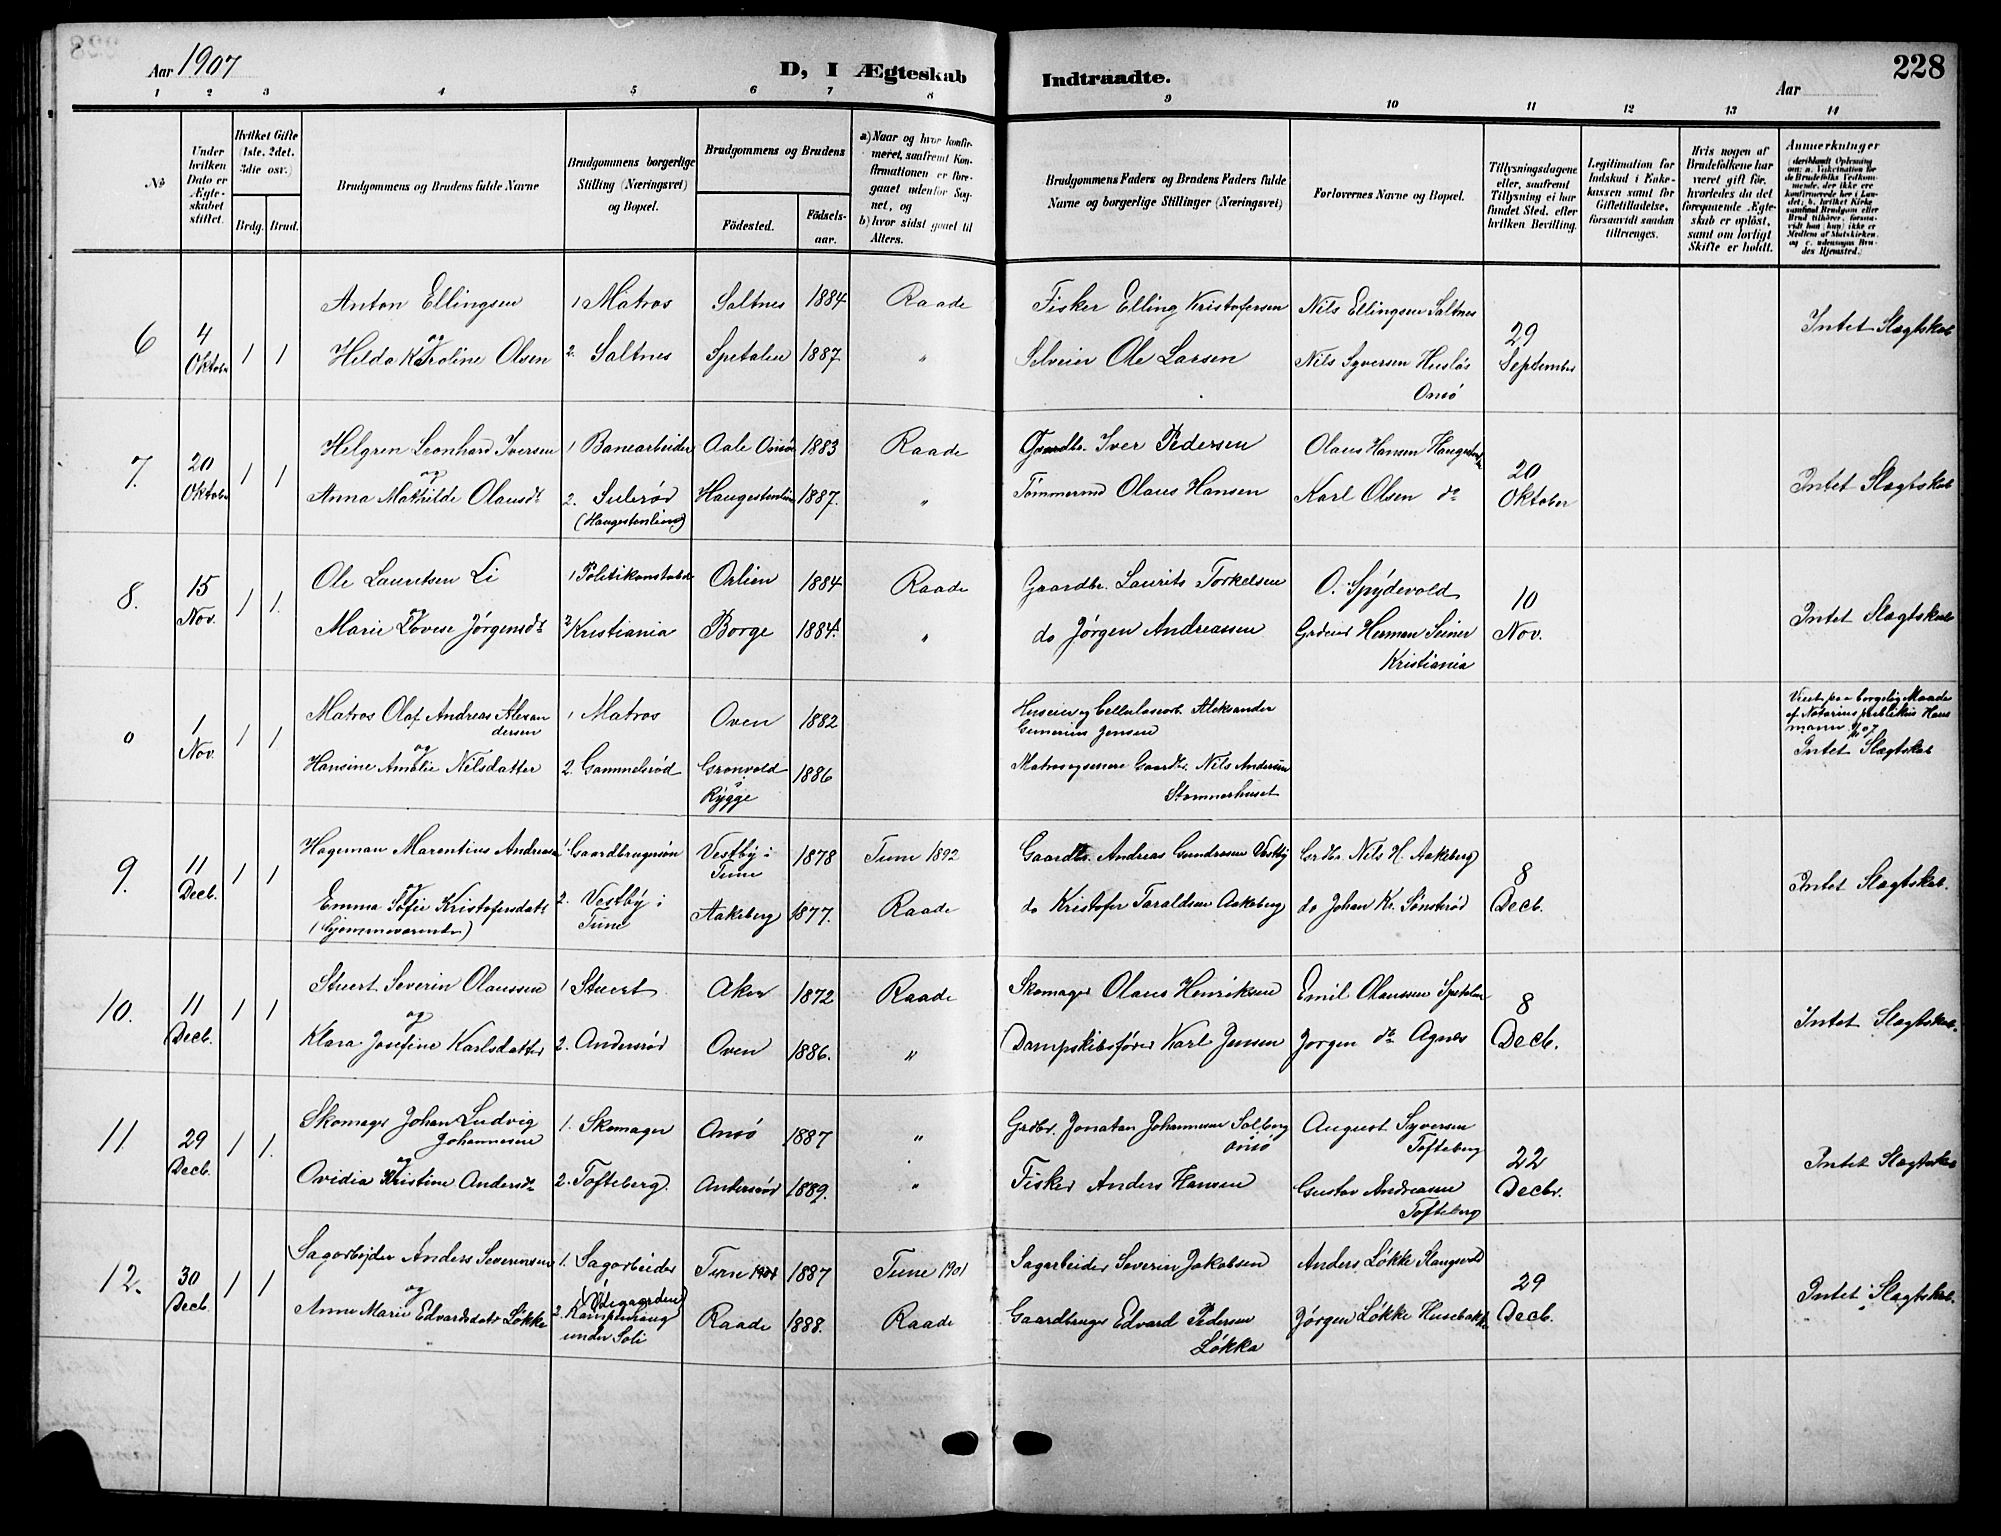 Aar 1907
D, I Ægteskab
Indtraadte.
Aar
228
1 2 3 4 5 6 7 8 9 10 11 12 13 14
No
Under hvilken Dato er Ægteskabet stiftet.
Hvilket Gifte (1ste, 2det, 3die osv.)
Brdg. Brud.
Brudgommens og Brudens fulde Navne
Brudgommens borgerlige Stilling (Næringsvei) og Bopæl.
Brudgommens og Brudens
Födested.
Födselsaar.
a) Naar og hvor konfirmeret, saafremt Konfirmationen er foregaaet udenfor Sognet, og b) hvor sidst gaaet til Alters.
Brudgommens Faders og Brudens Faders fulde Navne og borgerlige Stillinger (Næringsvei)
Forlovernes Navne og Bopæl.
Tillysningsdagene eller, saafremt Tillysning ei har fundet Sted, efter hvilken Bevilling.
Legitimation for Indskud i Enkekassen samt for Giftetilladelse, forsaavidt saadan tiltrænges.
Hvis nogen af Brudefolkene har været gift för, hvorledes da det foregaaende Ægteskab er oplöst, samt om lovligt Skifte er holdt.
Anmærkninger
6 4 Oktober 1 1
Anton Ellingsen
og
Hilda Karoline Olsen
1 Matros
2. Saltnes
Saltnes 1884 Raade
Spetalen 1887. "
Fisker Elling Kristofersen
Selveier Ole Larsen
Nils Ellingsen Saltnes
Nils Syversen Husløs
Onsö
29 September
Intet Slægtskab
7. 20 Oktober 1 1
Helgren Leonhard Iversen
og
Anna Mathilde Olausdt
1 Banearbeider
2. Sulerød
(Haugestenlien)
Aale Onsö 1883 Raade
Haugestenlien 1887. "
Gaardbr. Iver Pedersen
Tømmermd Olaus Hansen
Olaus Hansen
Karl Olsen do
20 Oktober
Intet Slægtskab
8. 15 Nov. 1 1.
Ole Lauritsen Li
og
Marie Lovise Jørgensdt
1 Politikonstabel
2 Kristiania
Orlien 1884 Raade
Borge 1884. "
Gaardbr. Laurits Torkelsen
do Jørgen Andreassen
O. Spydevold
Herman Seiner
Kristiania
10 Nov.
Intet Slægtskab
o 1 Nov. 1 1
Matros Olaf Andreas Alexandersen
og
Hansine Amalie Nilsdatter
1 Matros
2. Gammelsrød
Oven 1882
Grønvold Rygge 1886
Huseier og Cellulosearb. Aleksander
Gunerius Jensen
Matros og senere Gaardbr. Nils Andersen
Stommerhuset
Viet paa borgelig Maade
af Notarius publikus Hausmann 1/11 07
Intet Slægtskab
9. 11 Decb. 1 1
Hageman Marentius Andreasen
og
Emma Sofie Kristofersdatt
(Hjemmeværende)
1. Gaardbrugersøn
2. Vestby i Tune
Vestby i Tune 1878 Tune 1892
Aakeberg 1877. Raade
Gaardbr. Andreas Gundersen Vestby
do Kristofer Taraldsen Aakeberg
Grdbr. Nils H. Aakeberg
do Johan Kr. Sønsterød
8 Decb.
Intet Slægtskab.
10. 11 Decb. 1 1
Stuert Severin Olaussen
og
Klara Josefine Karlsdatter
1 Stuert
2. Andersrød
Aker 1872 Raade
Oven 1886. "
Skomager Olaus Henriksen
Dampskibsfører Karl Jensen
Emil Olaussen Spetalen
Jørgen do Agnes
8 Decb.
Intet Slægtskab.
11 29 Decb. 1 1.
Skomager Johan Ludvig
Johannesen
og
Ovidia Kristine Andersdt
1. Skomager
2. Tofteberg.
Onsö 1887 "
Andersrød 1889. "
Grdbr. Jonatan Johannesen Solberg
Onsö
Fisker Anders Hansen
August Syversen
Tofteberg
Gustav Andreasen
Tofteberg
22 Decbr.
Intet Slægtskab
12. 30 Decb. 1 1
Sagarbejder Anders Severinsen
og
Anne Marie Edvardsdatr Løkke
1. Sagarbeider
(Ødegaarden)
2. Kamphaug
under Soli
Tune 1887 Tune 1901
Raade 1888. Raade
Sagarbeider Severin Jakobsen
Gaardbruger Edvard Pedersen
Løkka
Anders Løkke Slangsvold
Jørgen Løkke Husebakke
29 Decb.
Intet Slægtskab.